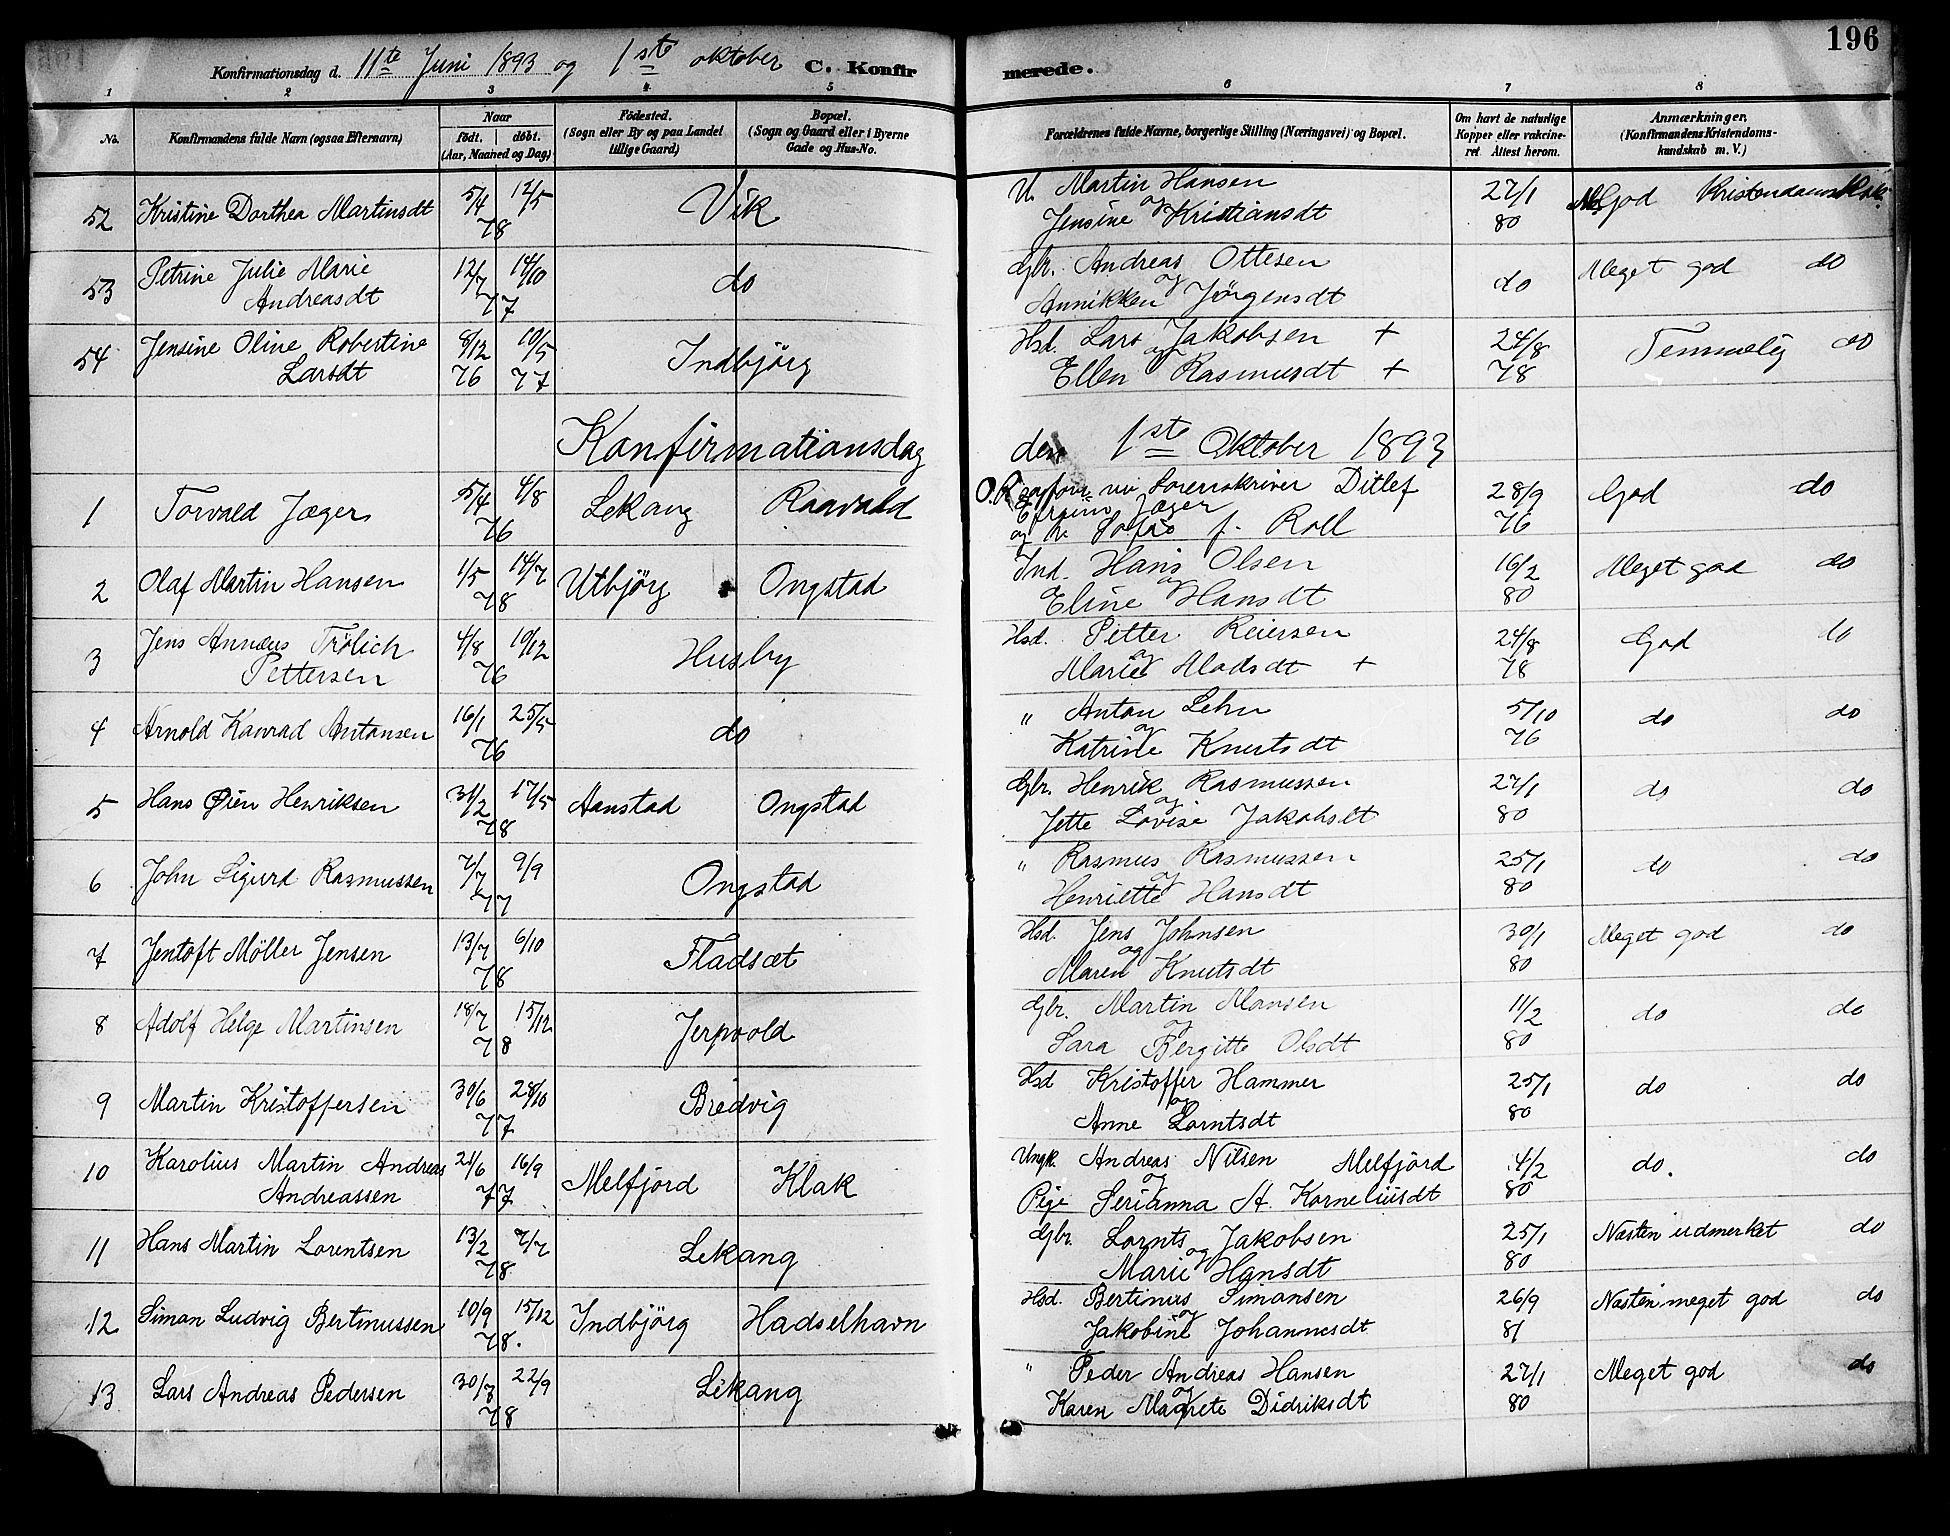 196
Konfirmationsdag d. 11te Juni 1893 og 1ste oktober C. Konfirmerede.
1 2 3 4 5 6 7 8
No. Konfirmandens fulde Navn (ogsaa Efternavn) Naar født. døbt. (Aar, Maaned og Dag) Fødested. (Sogn eller By og paa Landet tillige Gaard) Bopæl. (Sogn og Gaard eller i Byerne Gade og Hus-No. Forældrenes fulde Navne, borgerlige Stilling (Næringsvei) og Bopæl. Om havt de naturlige Kopper eller vakcineret. Attest herom. Anmærkninger. (Konfirmandens Kristendomskundskab m. V.)
52 Kristine Dorthea Martinsdt 5/4 12/5 Vik U. Martin Hansen 27/1 God
78 og Jensine Kristiansdt 80
53 Petrine Julie Marie 12/7 14/10 do Gbr. Andreas Ottesen do Meget god do
Andreasdt 77 og Annikken Jörgensdt
54 Jensine Oline Robertine 8/12 10/5 Indbjörg Hsd. Lars Jakobsen + 24/8 Temmelig do
Larsdt 76 77 og Ellen Rasmusdt + 78
Konfirmationsdag den 1ste Oktober 1893
1 Torvald Jæger 5/4 4/8 Lekang Raavald O.R. nu Sorenskriver Ditlef 28/9 God do
76 Efraim Jæger 76
og h. f. Roll
2 Olaf Martin Hansen 1/5 14/7 Utbjörg Ongstad Ind. Hans Olsen 16/2 Meget god do
78 og Eline Hansdt 80
3 Jens Annæus Frölich 4/8 10/12 Husby Hsd. Petter Reiersen 24/8 God do
Pettersen 76 og Marie Madsdt + 78
4 Arnold Konrad Antonsen 16/1 25/5 do " Anton Lehn 5/10 do do
76 og Katrine Knutsdt 76
5 Hans Øien Henriksen 31/2 17/5 Aanstad Ongstad Gbr. Henrik Rasmussen 27/1 do do
78 og Jette Lovise Jakobsdt 80
6 John Sigurd Rasmussen 7/7 9/9 Ongstad " Rasmus Rasmussen 25/1 do do
77 og Henriette Hansdt 80
7 Jentoft Möller Jensen 13/7 6/10 Fladsæt Hsd. Jens Johnsen 30/1 Meget god do
78 og Maren Knutsdt 80
8 Adolf Helge Martinsen 18/7 15/12 Jerpvold Gbr. Martin Monsen 11/2 do do
78 og Sara Bergitte Olsdt 80
9 Martin Kristoffersen 30/6 28/10 Bredvig Hsd Kristoffer Hammer 25/1 do do
77 og Anne Lorntsdt 80
10 Karolius Martin Andreas 21/6 16/9 Melfjord Klak Ungk. Andreas Nilsen Melfjord 4/2 do. do
Andreassen 77 og Pige Serianna A. Korneliusdt 80
11 Hans Martin Lorentsen 13/2 7/7 Lekang Gbr. Lornts Jakobsen 25/1 Næsten udmerket do
78 og Marie Hansdt 80
12 Simon Ludvig Bertinussen 10/9 15/12 Indbjörg Hadselhavn Hsd. Bertinus Simonsen 26/9 Næsten meget god do
78. og Jakobine Johannesdt 81
13 Lars Andreas Pedersen 30/7 22/9 Lekang " Peder Andreas Hansen 27/1 Meget god do
78 og Karen Magrete Didriksdt 80